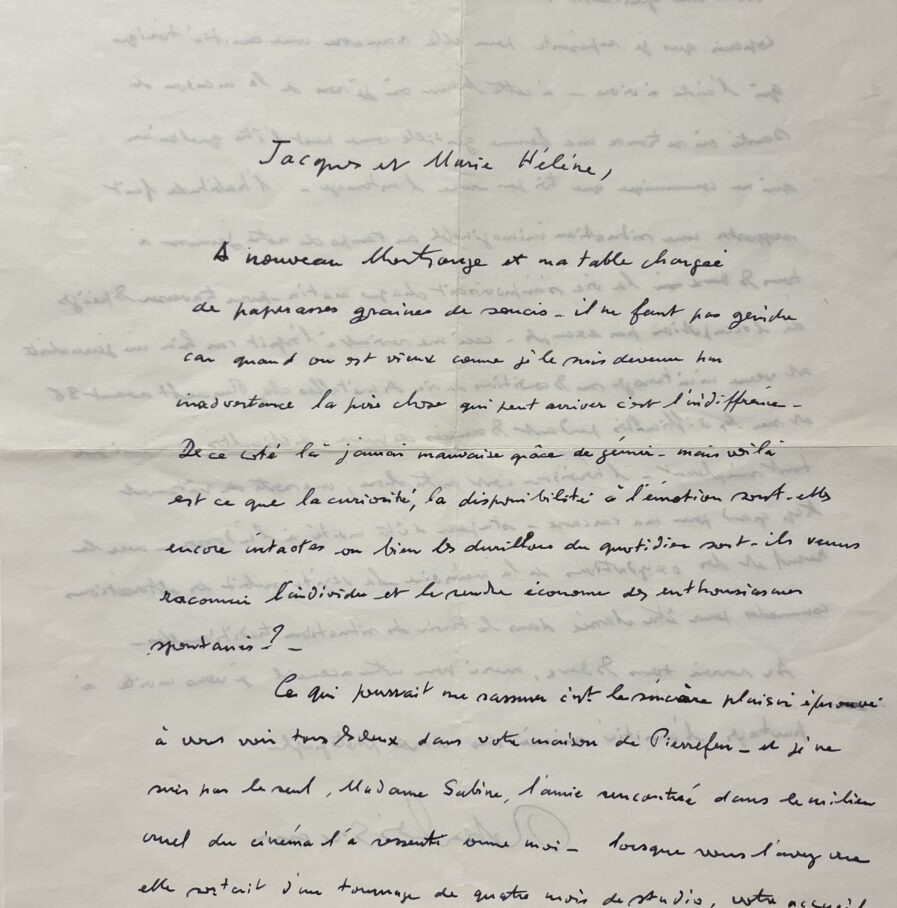 Jacques et Marie Hélène,
A nouveau Montrouge et ma table chargée
de paperasses graines de soucis - il ne faut pas geindre
car quand on est vieux comme je le suis devenu par
inadvertance la pire chose qui peut arriver c'est l'indifférence -
De ce côté là jamais mauvaise grâce de gémir - mais voilà
est ce que la curiosité, la disponibilité à l'émotion sont-elles
encore intactes ou bien les durillons du quotidien sont-ils venus
racornir l'individu et le rendre économe des enthousiasmes
spontanés ? -
Ce qui pourrait me rassurer c'est le sincère plaisir éprouvé
à vous voir tous deux dans votre maison de Pierrefeu - et je ne
suis pas le seul, Madame Sabine, l'amie rencontrée dans le milieu
cruel du cinéma l'a ressenti comme moi - lorsque vous l'avez vue
elle sortait d'un tournage de quatre mois de studio, votre accueil